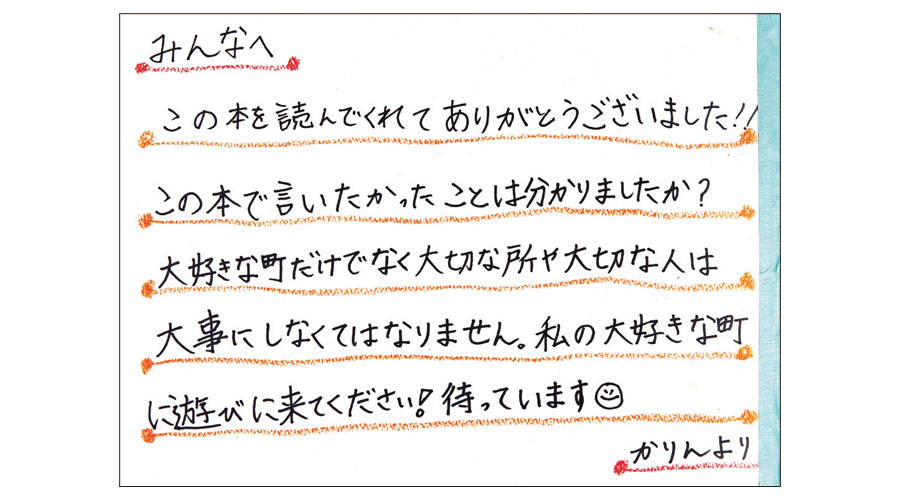 みんなへ
この本を読んでくれてありがとうございました!!
この本で言いたかったことは分かりましたか？
大好きな町だけでなく大切な所や大切な人は
大事にしなくてはなりません。私の大好きな町
に遊びに来てください！待っています☺
かりんより